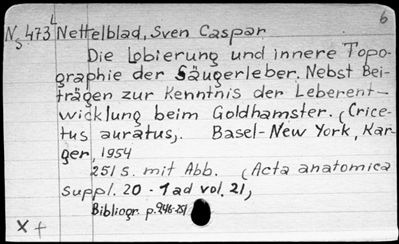 6
L
Ns 473 Nettelblad, Sven Caspar
Die Lobierung und innere Topo-
graphie der Säugerleber. Nebst Bei-
trägen zur Kenntnis der Leberent-
wicklung beim Goldhamster. (Crice-
tus auratus). Basel-New York, Kar-
ger, 1954
251 s. mit Abb. (Acta anatomica
suppl. 20 - 1 ad vol. 21)
Bibliogr. p. 246-251
X +